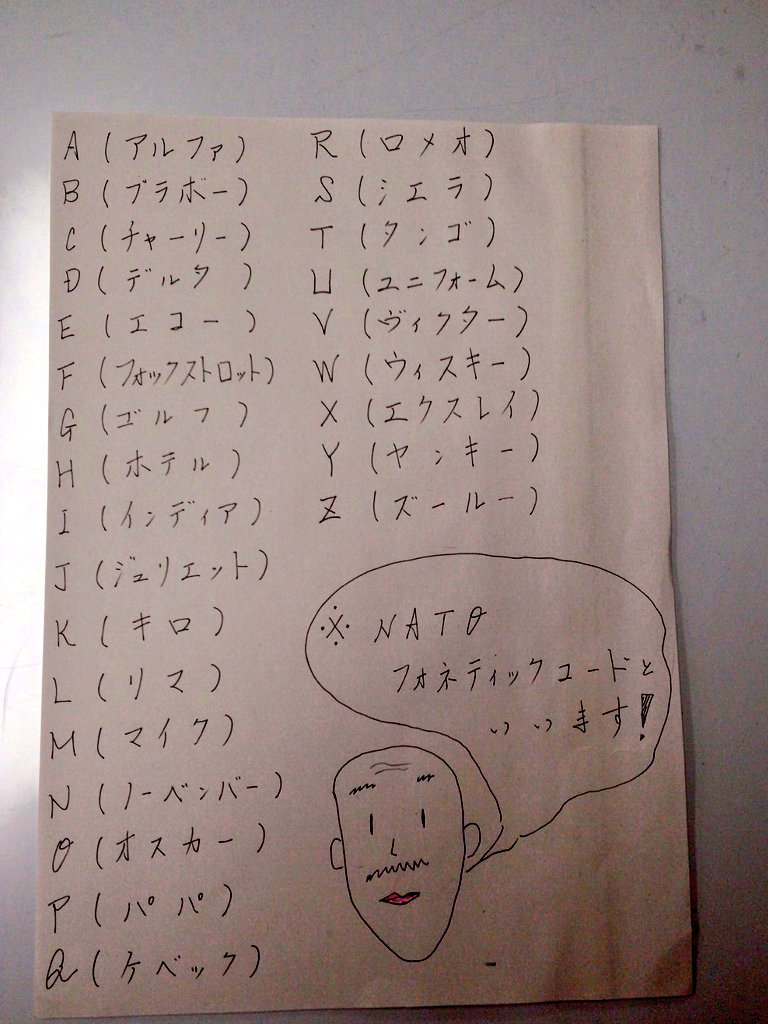 A (アルファ)
B (ブラボー)
C (チャーリー)
D (デルタ)
E (エコー)
F (フォックストロット)
G (ゴルフ)
H (ホテル)
I (インディア)
J (ジュリエット)
K (キロ)
L (リマ)
M (マイク)
N (ノーベンバー)
O (オスカー)
P (パパ)
Q (ケベック)
R (ロメオ)
S (シエラ)
T (タンゴ)
U (ユニフォーム)
V (ヴィクター)
W (ウィスキー)
X (エクスレイ)
Y (ヤンキー)
Z (ズールー)
※ NATO
フォネティックコードと
いいます!